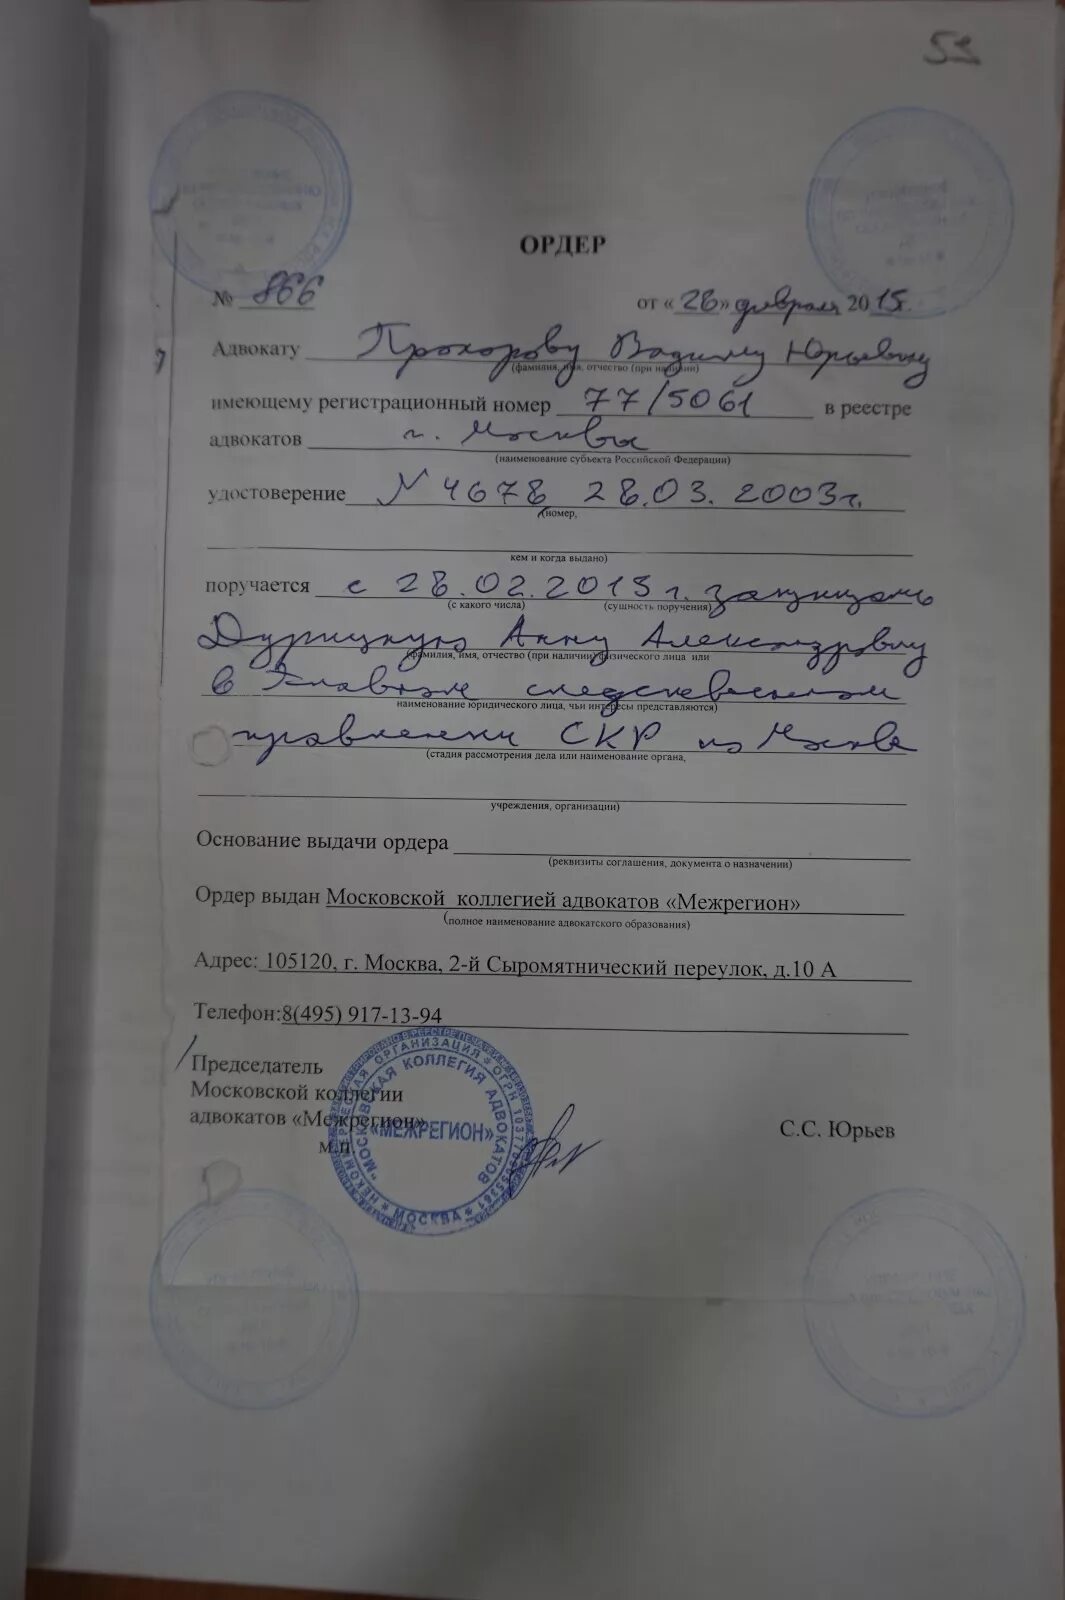 ОРДЕР
№ 866 от «28» февраля 2015г.
Адвокату Прохорову Вадиму Юрьевичу
(фамилия, имя, отчество (при наличии)
имеющему регистрационный номер 77/5061 в реестре
адвокатов г. Москвы
(наименование субъекта Российской Федерации)
удостоверение N 4678 28.03.2003г.
(номер,
кем и когда выдано)
поручается с 28.02.2015г. защищать
(с какого числа) (сущность поручения)
Дурицкую Анну Александровну
(фамилия, имя, отчество (при наличии) физического лица или
в Главном следственном
наименование юридического лица, чьи интересы представляются)
управлении СКР по Москве
(стадия рассмотрения дела или наименование органа,
учреждения, организации)
Основание выдачи ордера
(реквизиты соглашения, документа о назначении)
Ордер выдан Московской коллегией адвокатов «Межрегион»
(полное наименование адвокатского образования)
Адрес: 105120, г. Москва, 2-й Сыромятнический переулок, д.10 А
Телефон:8(495) 917-13-94
Председатель
Московской коллегии
адвокатов «Межрегион»
м.п.
С.С. Юрьев
НЕКОММЕРЧЕСКАЯ ОРГАНИЗАЦИЯ * ОГРН
"МОСКОВСКАЯ КОЛЛЕГИЯ АДВОКАТОВ
«МЕЖРЕГИОН»
* МОСКВА *